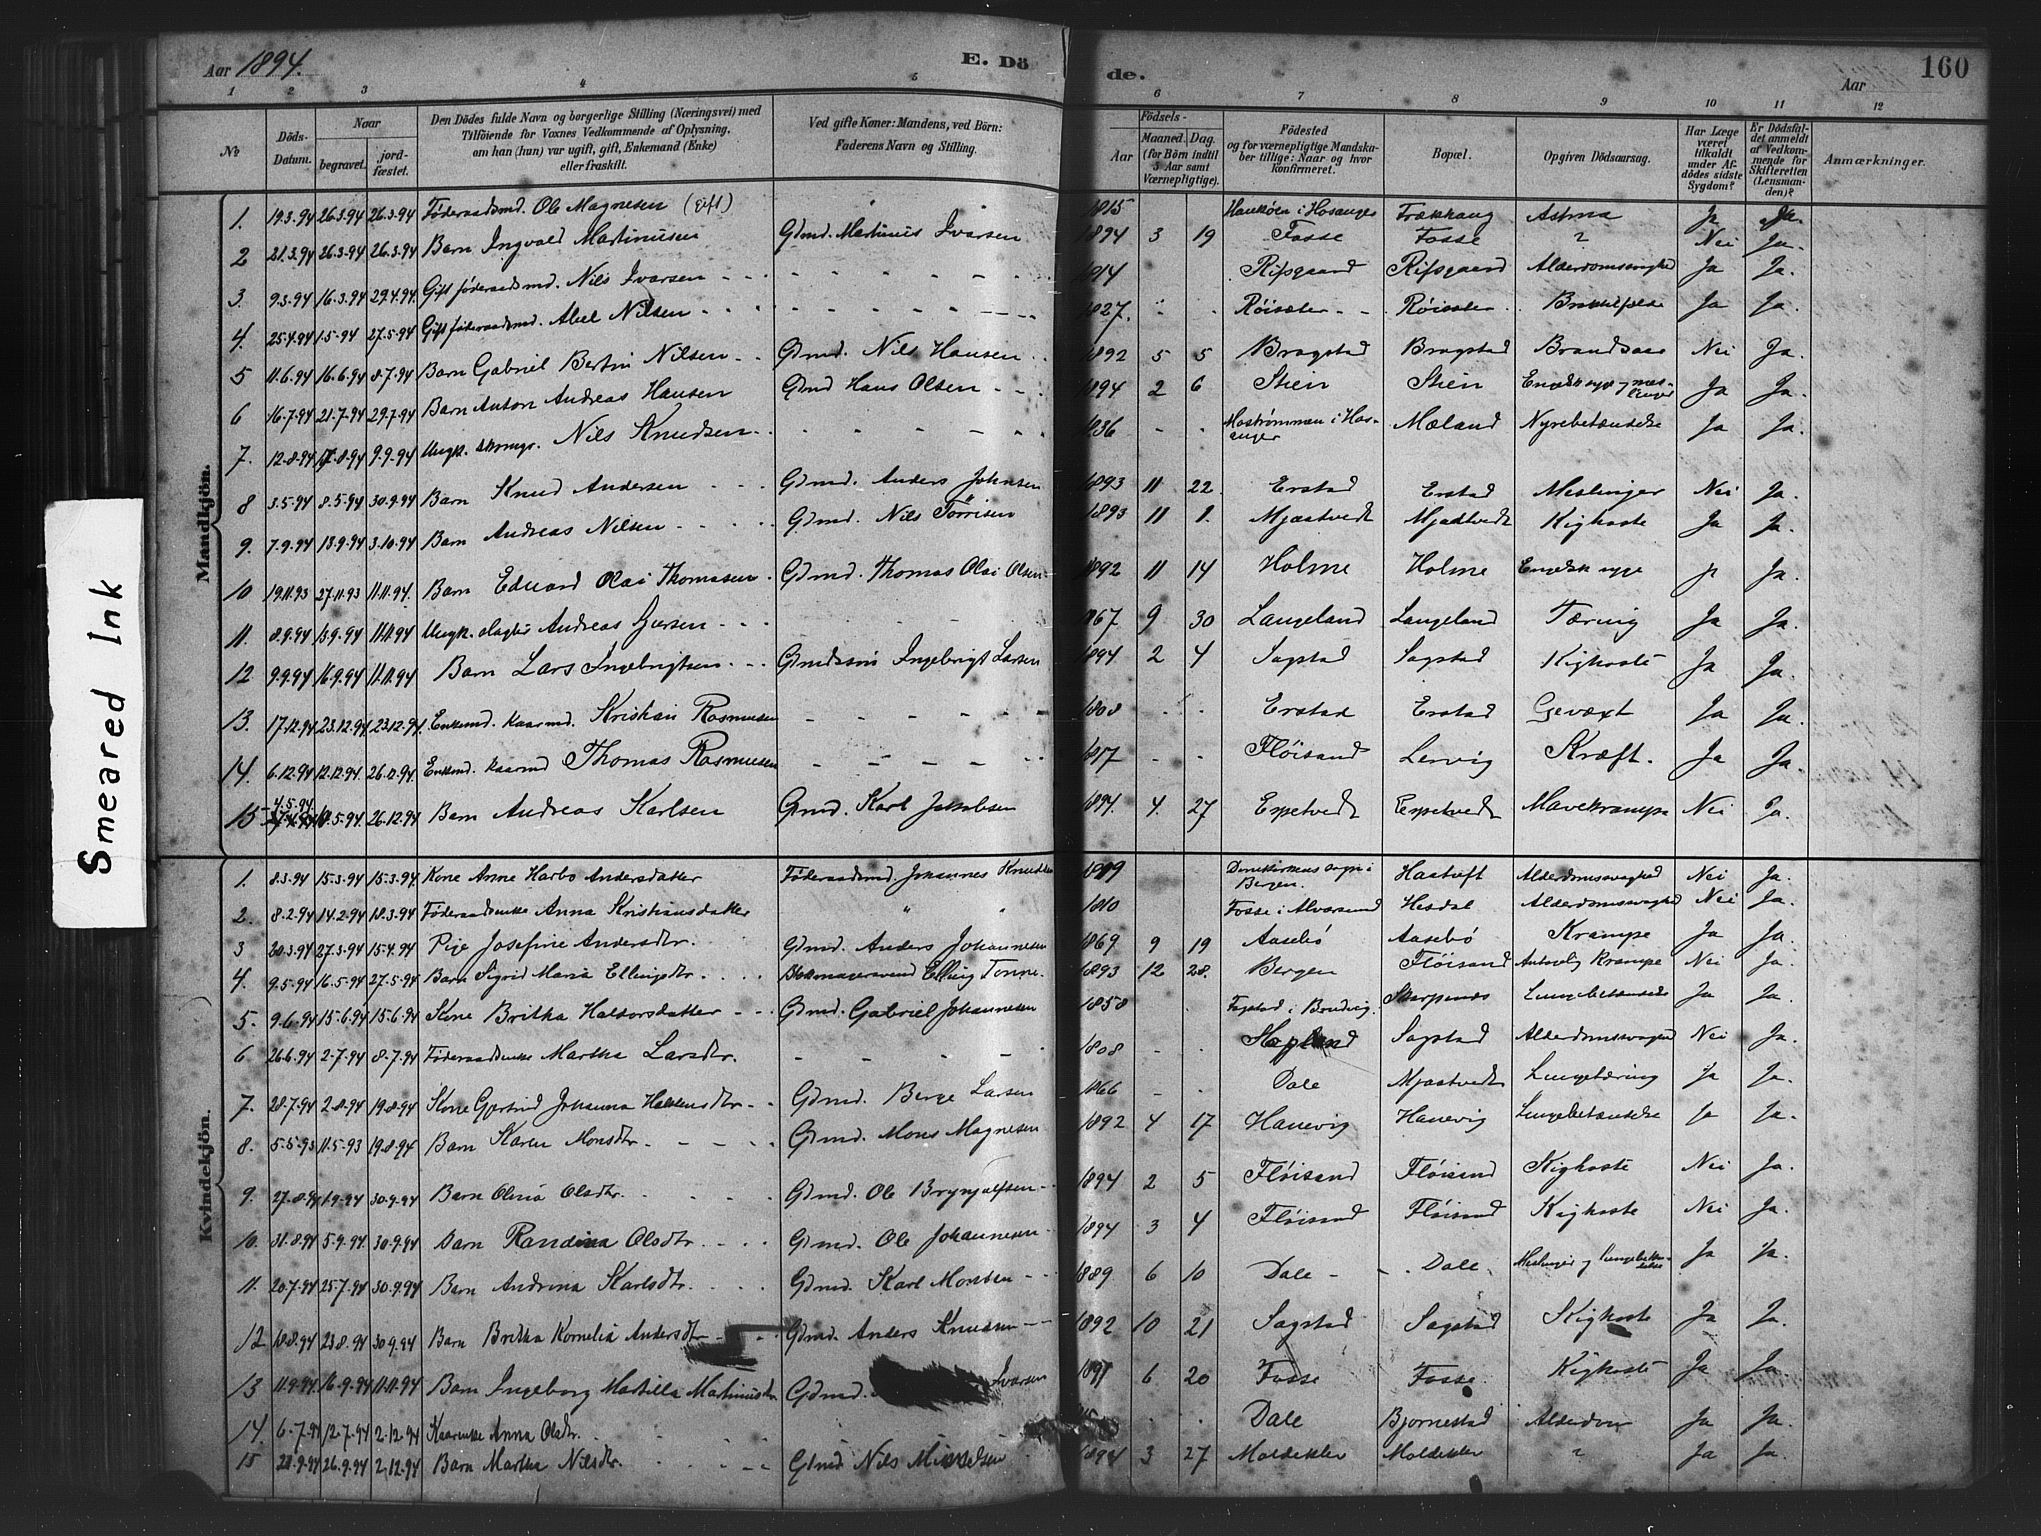 Smeared Ink
Aar 1894. E. Dö de. Aar 160
1 2 3 4 5 6 7 8 9 10 11 12
№ Döds-Datum. Naar begravet. jord-fæstet. Den Dödes fulde Navn og borgerlige Stilling (Næringsvei) med Tilföiende for Voxnes Vedkommende af Oplysning, om han (hun) var ugift, gift, Enkemand (Enke) eller fraskilt. Ved gifte Koner: Mandens, ved Börn: Faderens Navn og Stilling. Födsels- Aar Maaned. Dag. (for Börn indtil 5 Aar samt Værnepligtige). Födested og for værnepligtige Mandskaber tillige: Naar og hvor konfirmeret. Bopæl. Opgiven Dödsaarsag. Har Læge været tilkaldt under Afdödes sidste Sygdom? Er Dödsfaldet anmeldt af Vedkommende for Skifteretten (Lensmanden)? Anmærkninger.
Mandkjön.
1. 19.3.94 26.3.94 26.3.94 Föderaadsmd. Ole Magnesen (gift) 1815 i Hosanger Astma Ja Ja.
2 21.3.94 26.3.94 26.3.94 Barn Ingvald Martinusen Gdmd. Martinus Ivarsen 1894 3 19 Fosse Fosse ? Nei Ja.
3. 9.3.94 16.3.94 29.4.94. Gift föderaadsmd. Nils Ivarsen 1814 Risgaard Risgaard Alderdomssvaghed Ja Ja.
4. 25.4.94 1.5.94 27.5.94 Gift föderaadsmd. Abel Nilsen 1827. Röisæter Röisæter Ja Ja.
5 11.6.94 16.6.94 8.7.94 Barn Gabriel Bertin Nilsen Gdmd. Nils Hansen 1892 5 5 Bragstad Bragstad Brandsaar Nei Ja.
6 16.7.94 21.7.94 29.7.94 Barn Anton Andreas Hansen Gdmd Hans Olsen 1894 2 6 Stien Stien Engelsk syge og meslinger Ja Ja.
7. 12.8.94 17.8.94 9.9.94 Ungk. Nils Knudsen 1836 Mostrømmen i Hosanger Mæland Nyrebetændelse Ja Ja.
8 3.5.94 8.5.94 30.9.94 Barn Knud Andersen Gdmd. Anders Johnsen 1893 11 22. Erstad Erstad Meslinger Nei Ja.
9. 7.9.94 13.9.94 3.10.94 Barn Andreas Nilsen Gdmd. Nils Törrisen 1893 11 1. Mjaatvedt Mjaatvedt Kighoste Ja Ja.
10 19.11.93 27.11.93 11.11.94. Barn Eduard Olai Thomasen Gdmd. Thomas Olai Olsen 1892 11 14 Holme Holme Engelsk syge Ja Ja.
11. 8.9.94 13.9.94 11.11.94 Ungk. Andreas Gjersen 1867 9 30 Langeland Langeland Tæring Ja Ja.
12 9.9.94 16.9.94 11.11.94 Barn Lars Ingebrigtsen Ingebrigt Larsen 1894 2 4 Sagstad Sagstad Kighoste Ja Ja.
13. 17.12.94 23.12.94 23.12.94. Enkemd. kaarmd. Kristian Rasmusen 1808 Erstad Erstad Gevæxt Ja Ja.
14. 6.12.94 12.12.94. 26.12.94. Enkmd. kaarmd Thomas Rasmusen 1817 Flöisand Lervig Kræft. Ja Ja
15 4.5.94. 5.94 26.12.94 Barn Andreas Karlsen Gdmd. Karl Jakobsen 1894. 4. 27 Espetvedt Espetvedt Mavekrampe Nei Ja.
Kvindekjön.
1. 8.3.94 15.3.94 15.3.94. Kone Anne Harbo Andersdatter Föderaadsmd. Johannes Knudsen Domkirkens sogn i Bergen. Haatuft Alderdomssvaghed Nei Ja.
2. 8.2.94 14.2.94 18.3.94 Föderaadsenke Anna Kristiansdatter " " 1810 Fosse i Alversund Hesdal Alderdomssvaghed Nei Ja.
3 20.3.94 27.3.94 15.4.94 Pige Josefine Andersdtr. Gdmd. Anders Johannesen 1869 9 19 Aasebö Aasebö Krampe Ja Ja.
4. 9.5.94 16.5.94 27.5.94 Barn Sigrid Maria Ellingsdtr. Elling Tonne. 1893 12 28. Bergen Flöisand Krampe Nei Ja.
5. 9.6.94 15.6.94 15.6.94. Kone Britha Haldorsdatter Gdmd. Gabriel Johannesen 1858 Fagstad i Bruvig. Skarpenes Lungebetændelse Ja Ja.
6 26.6.94 2.7.94 8.7.94 Föderaadsenke Martha Larsdtr. 1808 Sagstad Alderdomssvaghed Nei Ja.
7. 28.7.94 2.8.94 19.8.94 Kone Gjertrud Johanna Haldensdtr. Gdmd. Berge Larsen 1866 Dale Mjaatvedt Lungetæring Ja Ja.
8. 5.5.93 11.5.93 19.8.94 Barn Karen Monsdtr. Gdmd. Mons Magnesen 1892 4 17 Hanevig Hanevig Lungebetændelse Ja Ja.
9. 27.8.94 1.9.94 30.9.94 Barn Olina Olsdtr. Gdmd. Ole Brynjulfsen 1894 2 5 Flöisand Flöisand Kighoste Nei Ja.
10. 31.8.94 5.9.94 30.9.94 Barn Randina Olsdtr. Gdmd. Ole Johannesen 1894 3 4 Flöisand Flöisand Kighoste Nei Ja.
11. 20.7.94 25.7.94 30.9.94 Barn Andrina Karlsdtr. Gdmd. Karl Monsen 1889 6 10 Dale Dale Meslinger og lungebetændelse Ja Ja.
12 18.8.94 23.8.94 30.9.94 Barn Britha Kornelia Andersdtr Gdmd. Anders Knudsen 1892 10 21 Sagstad Sagstad Kighoste Ja Ja.
13 11.9.94. 16.9.94 11.11.94 Barn Ingeborg Martilla Martinusdtr Gdmd. Ivarsen 1891 6 20 Fosse Fosse. Kighoste Ja Ja
14. 6.7.94 12.7.94 2.12.94 Kaarenke Anna Olsdtr. Dale Bjørnestad Alderdom Ja Ja.
15 21.9.94 26.9.94 2.12.94 Barn Martha Nilsdtr. Gdmd Nils Mikkelsen 1894 3 27 Moldekleiv Moldekleiv ? Ja Ja.